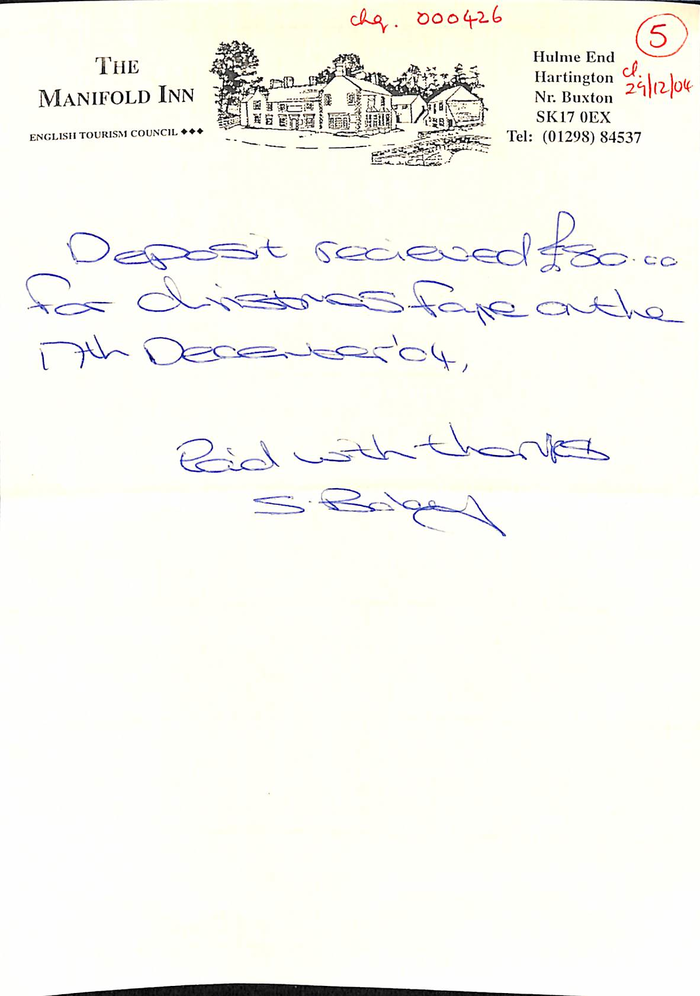 chq. 000426
5
THE
MANIFOLD INN
ENGLISH TOURISM COUNCIL ◆◆◆
Hulme End
Hartington
Nr. Buxton
SK17 0EX
Tel: (01298) 84537
cl.
29/12/04
Deposit recieved £80.00
for christmas fare on the
17th December '04,
Paid with thanks
S.